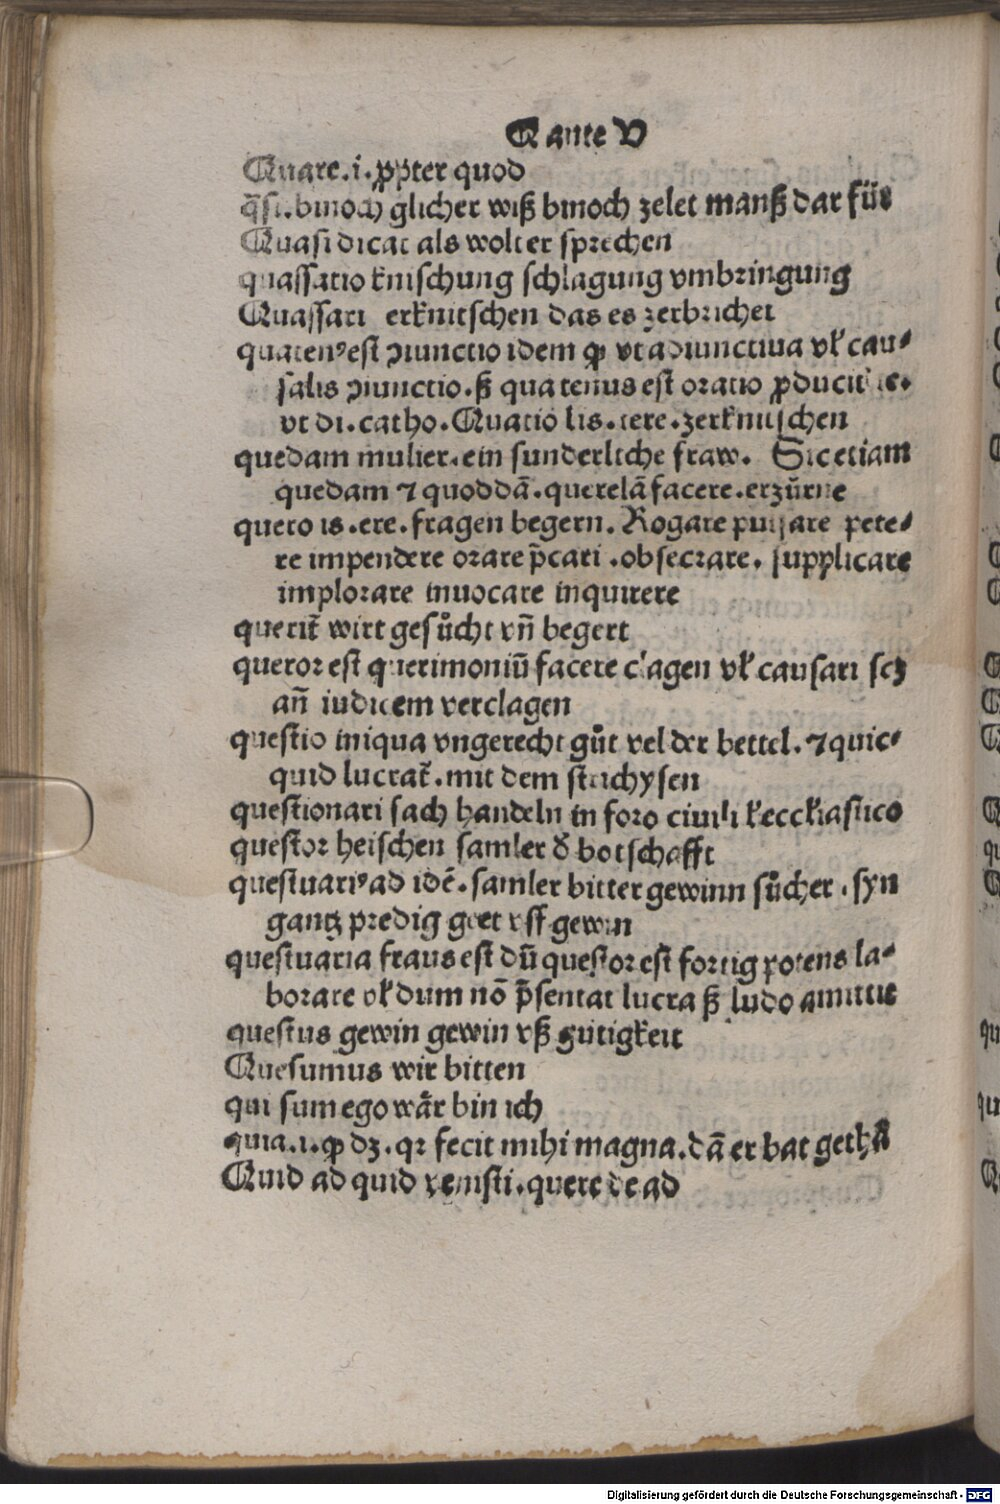 Q ante V
Quare.i.ꝓpter quod
q̃si.binoch glicher wiß binoch zelet manß dar für
Quasi dicat als wolt er sprechen
quassatio knischung schlagung vmbringung
Quassari erknitschen das es zerbrichet
quatenꝰ est ↄiunctio idem ꝙ vt adiunctiua vl̕ cau⸗
salis ↄiunctio.ß quatenus est oratio ꝓducit̕ ⁊c.
vt di.catho.Quatio lis.tere.zerknischen
quedam mulier.ein sunderliche fraw. Sic etiam
quedam ⁊ quoddã.querelã facere.erzürne
quero is.ere.fragen begern.Rogare pulsare pete⸗
re impendere orare p̃cari.obsecrare.supplicare
implorare inuocare inquirere
querit̃ wirt gesůcht vñ begert
queror est querimoniũ facere clagen vl̕ causari scꝫ
añ iudicem verclagen
questio iniqua vngerecht gůt vel der bettel.⁊ quic⸗
quid lucrat̃.mit dem stachysen
questionari sach handeln in foro ciuili l̕ eccl̕iastico
questor heischen samler d̕ botschafft
questuariꝰ ad idẽ.samler bitter gewinn sůcher.syn
gantz predig geet vff gewin
questuaria fraus est dũ questor est fortig potens la⸗
borare vl̕ dum nõ p̃sentat lucra ß ludo amittit
questus gewin gewin vß gütigkeit
Quesumus wir bitten
qui sum ego wår bin ich
quia.i.ꝙ dꝫ.qꝛ fecit mihi magna.dã er hat gethã
Quid ad quid venisti.quere de ad
Digitalisierung gefördert durch die Deutsche Forschungsgemeinschaft - DFG